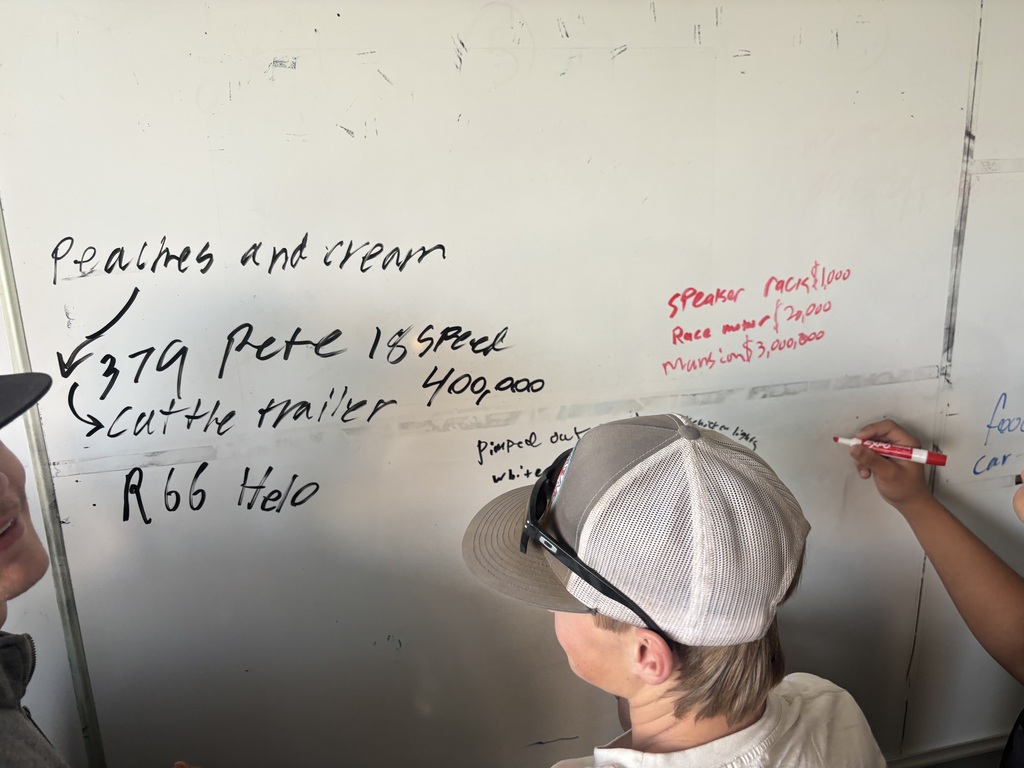 Peaches and cream
379 Pete 18 speed
400,000
Cattle trailer
R66 Helo
Pimped out
white
Speaker racks $1,000
Race motor $20,000
Mansion $3,000,000
foo
car